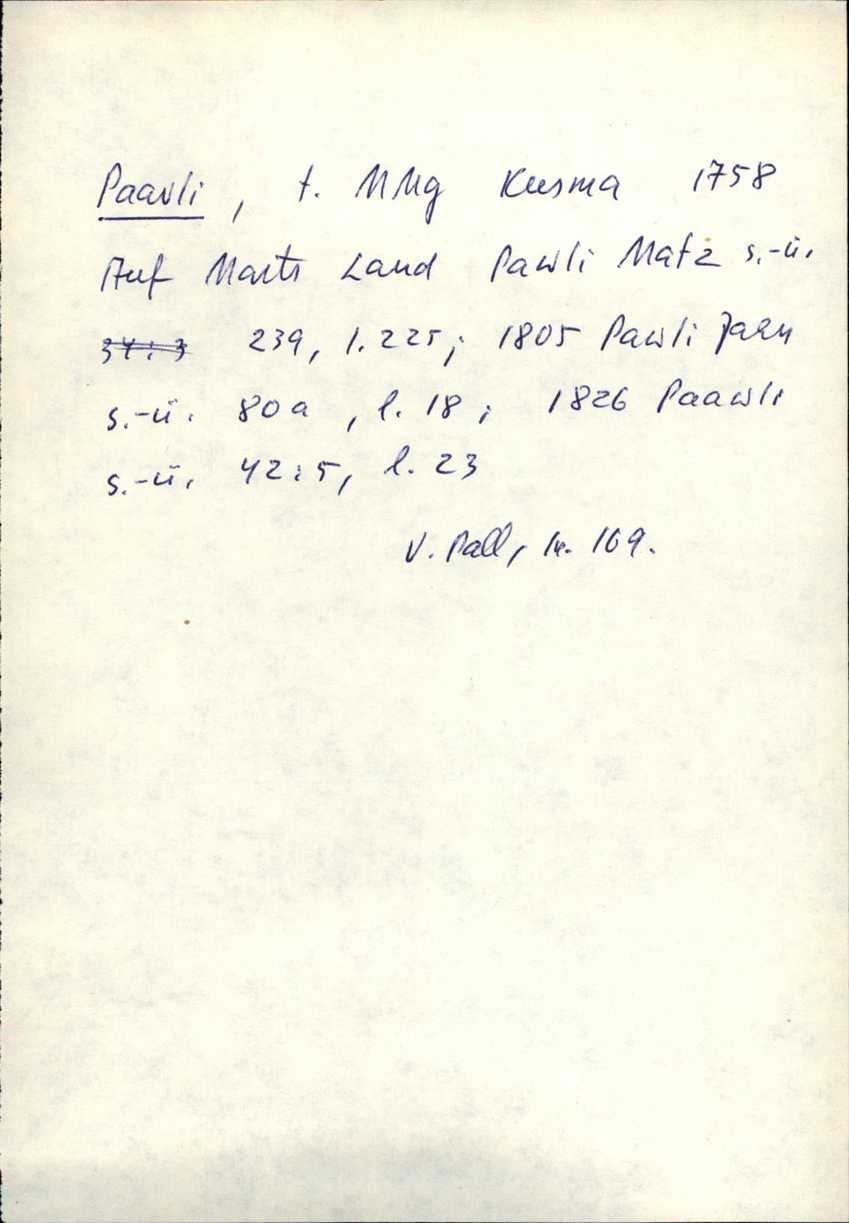 Paavli, t. MMg Kusma 1758
Auf Marts Land Pawli Matz s.-ü.
34:3 239, l. 225; 1805 Pawli Jaen
s.-ü. 80a, l. 18; 1826 Paawli
s.-ü. 42:5, l. 23
V. Pall, lk. 169.